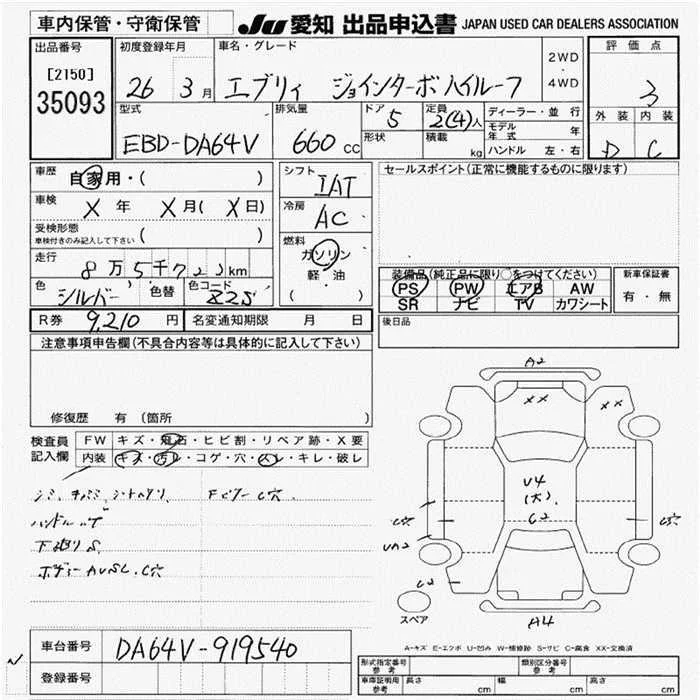 車内保管・守衛保管
JU 愛知 出品申込書 JAPAN USED CAR DEALERS ASSOCIATION
出品番号 [2150] 35093
初度登録年月 26 3月
車名・グレード エブリィ ジョインターボハイルーフ
2WD ・ 4WD
評価点 3
型式 EBD-DA64V
排気量 660 cc
ドア 5
形状
定員 2(4)人
積載 kg
ディーラー・並行
モデル年式 年
ハンドル 左・右
外装 内装
D C
車歴 自家用・( )
車検 X年 X月(X日)
受検形態
車検付きのみ記入して下さい ( )
走行 8万5千722km
色 シルバー 色替 色コード Z2S
シフト IAT
冷房 AC
燃料 ガソリン
軽・油
( )
セールスポイント(正常に機能するものに限ります)
装備品(純正品に限り○をつけてください)
PS PW エアB AW
SR ナビ TV カワシート
新車保証書
有・無
R券 9,210 円 名変通知期限 月 日
後日品
注意事項申告欄(不具合内容等は具体的に記入して下さい)
修復歴 有 (箇所
検査員記入欄
FW キズ・飛石・ヒビ割・リペア跡・X要
内装 キズ・汚レ・コゲ・穴・スレ・キレ・破レ
ハンドル
ボディー AUSC.C穴
A2
XX
XX
U4
(大).
C2
C穴
C穴
UA2
C2
A4
スペア
A-キズ E-エクボ U-凹み W-補修跡 S-サビ C-腐食 XX-交換済
車台番号 DA64V-919540
登録番号
形式指定番号 参考
類別区分番号 参考
車庫証明用 参考 長さ cm 幅 cm 高さ cm